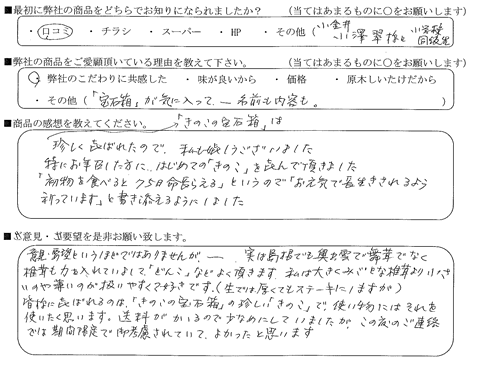 ■最初に弊社の商品をどちらでお知りになられましたか? (当てはまるものに〇をお願いします)
・口コミ ・チラシ ・スーパー ・HP ・その他(小金井 小澤翠様と
■弊社の商品をご愛顧頂いている理由を教えて下さい。 (当てはまるものに〇をお願いします)
・弊社のこだわりに共感した ・味が良いから ・価格 ・原木しいたけだから
・その他(「宝石箱」が気に入って、― 名前も内容も。 )
■商品の感想を教えてください。 「きのこの宝石箱」は
珍しく喜ばれたので、私も嬉しうございました
特にお年召した方に、はじめての「きのこ」を喜んで頂きました
「初物を食べると75日命長らえる」というので「お元気で長生きされるよう
祈っています」と書き添えるようにしました
■ご意見・ご要望を是非お願い致します。
意見・要望というほどではありませんが ― 実は島根でも奥出雲で舞茸でなく
椎茸も力を入れていまして「どんこ」などよく頂きます。私は大きくみごとな椎茸より小さ
いのや薄いのが扱いやすくて好きです。(生では厚くてもステーキにしますが)
皆様に喜ばれるのは、「きのこの宝石箱」の珍しい「きのこ」で、使い物にはそれを
使いたく思います。送料がかかるので少なめにしていましたが、この度のご連絡
では期間限定で御考慮されていて、よかったと思います